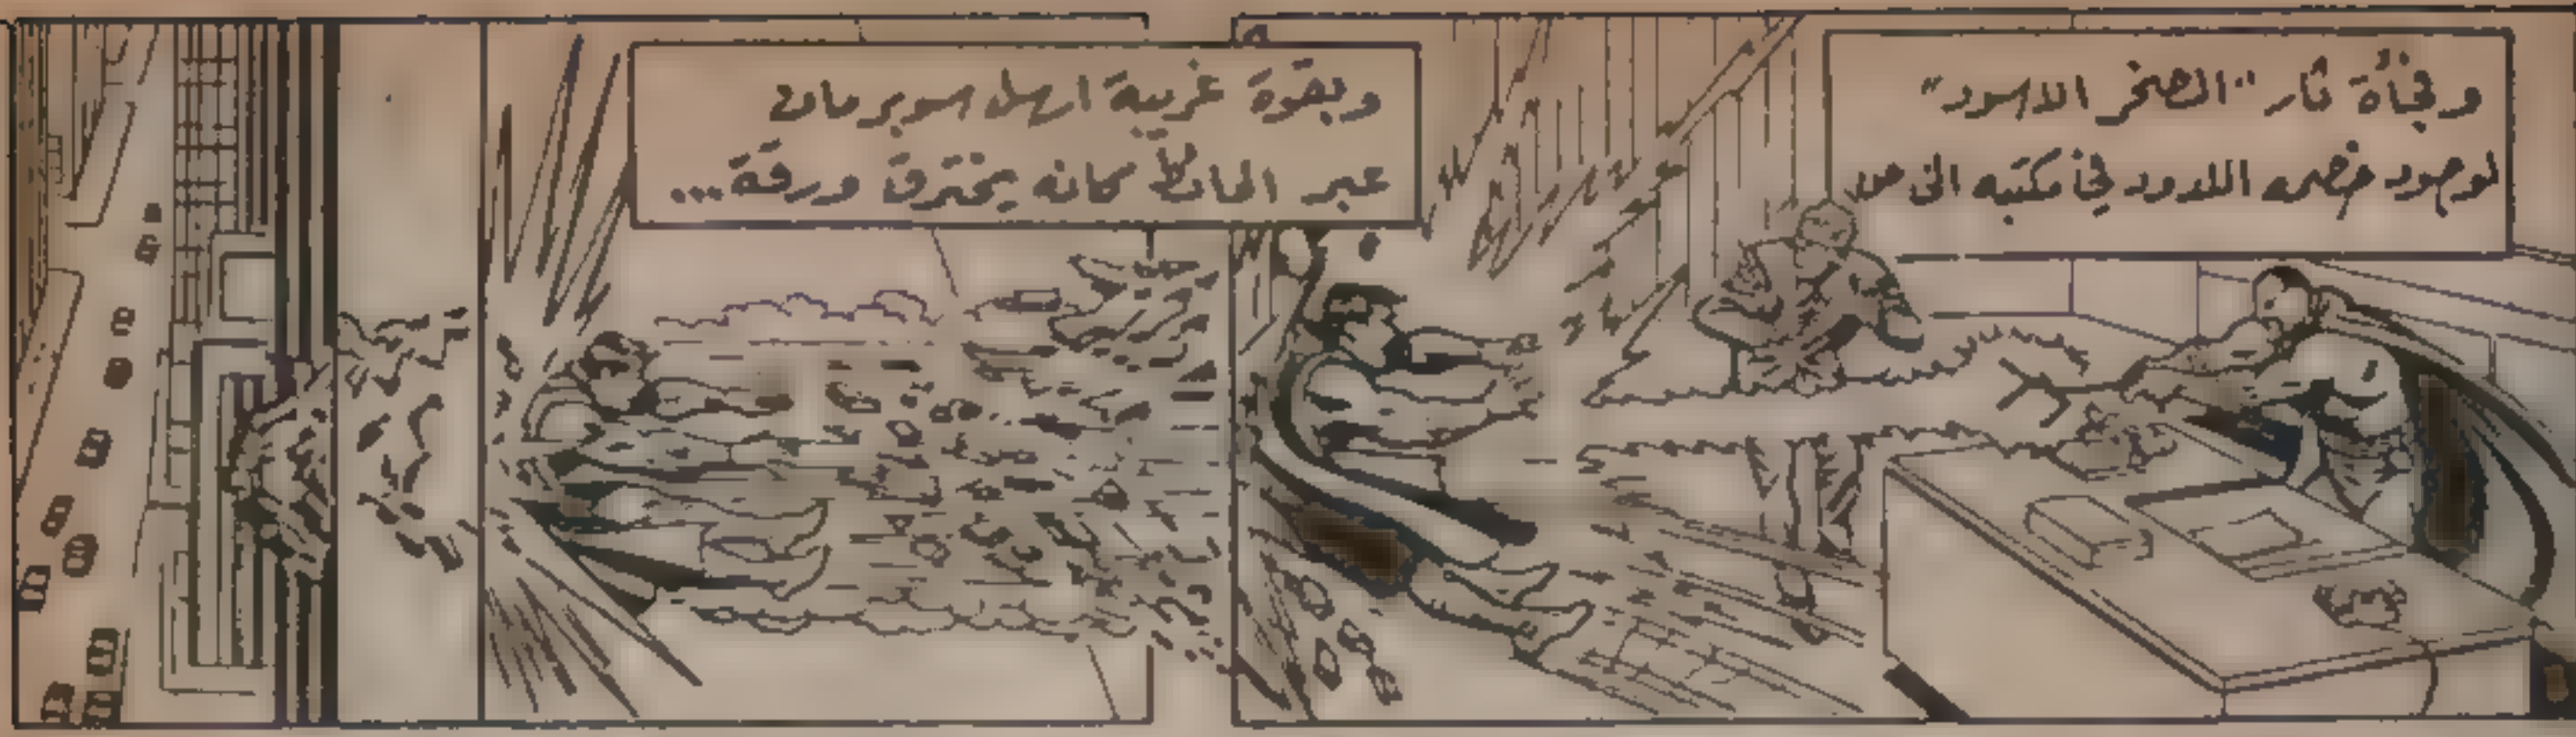 وفجأة ثار "الصخر الاسود"
لوجود خصمه اللدود في مكتبه الى حد
وبقوة غريبة ارسل سوبرمان
عبر الحائط كانه يخترق ورقة...